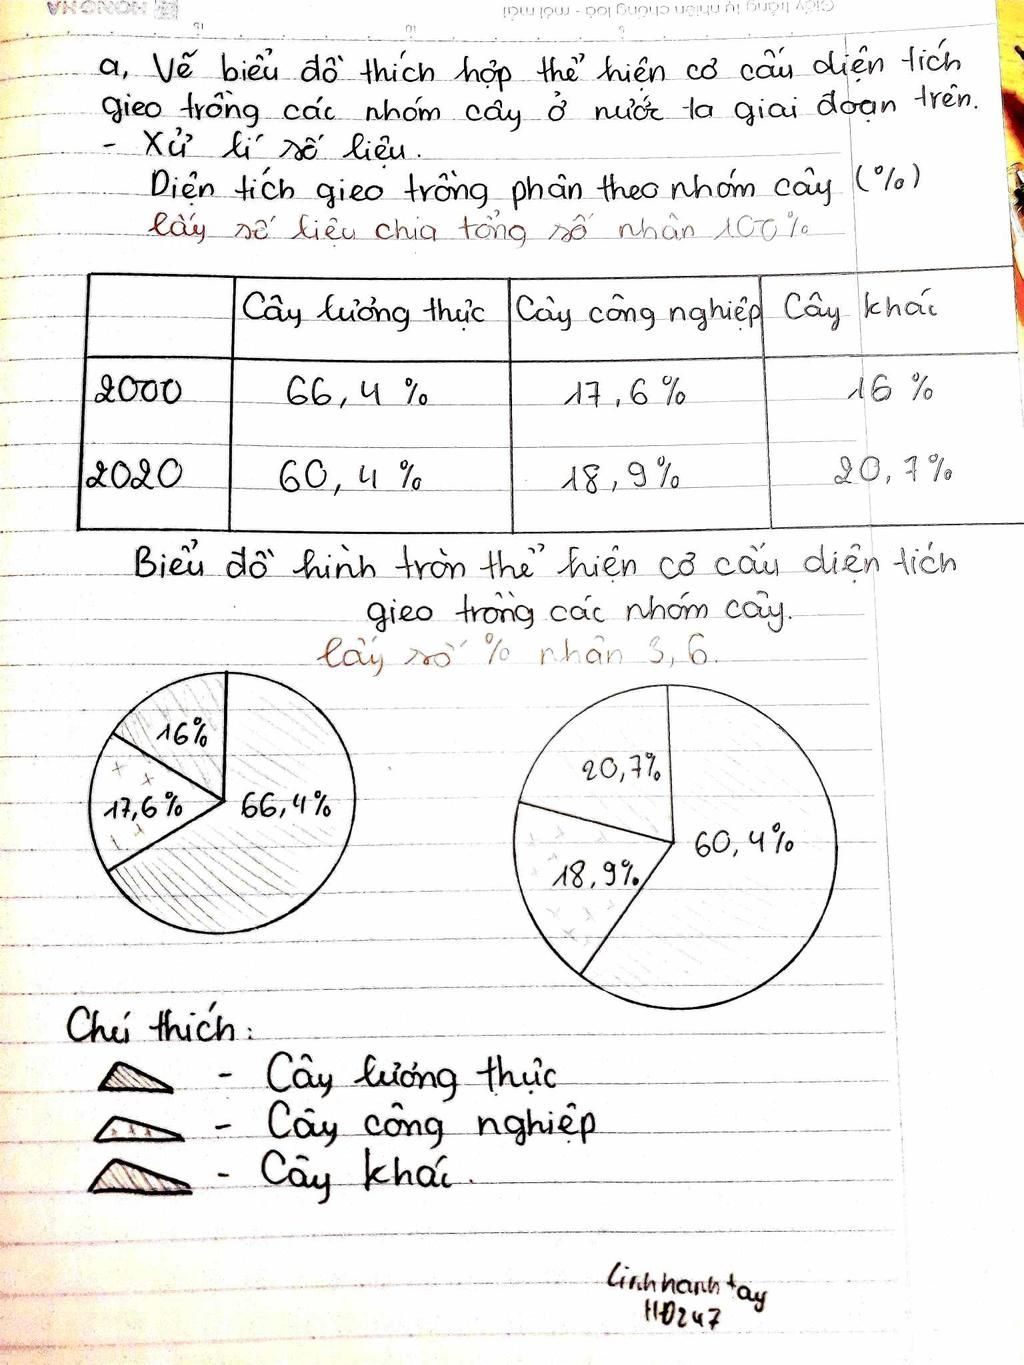 HONG HA
Giấy trắng tự nhiên chống loá - mỏi mắt
a, Vẽ biểu đồ thích hợp thể hiện cơ cấu diện tích
gieo trồng các nhóm cây ở nước ta giai đoạn trên.
- Xử lí số liệu.
Diện tích gieo trồng phân theo nhóm cây (%)
lấy số liệu chia tổng số nhân 100%
Cây lương thực Cây công nghiệp Cây khác
2000 66,4% 17,6% 16%
2020 60,4% 18,9% 20,7%
Biểu đồ hình tròn thể hiện cơ cấu diện tích
gieo trồng các nhóm cây.
lấy số % nhân 3,6.
16%
17,6% 66,4%
20,7%
60,4%
18,9%
Chú thích:
- Cây lương thực
- Cây công nghiệp
- Cây khác.
Linhhanh+ay
HĐ247